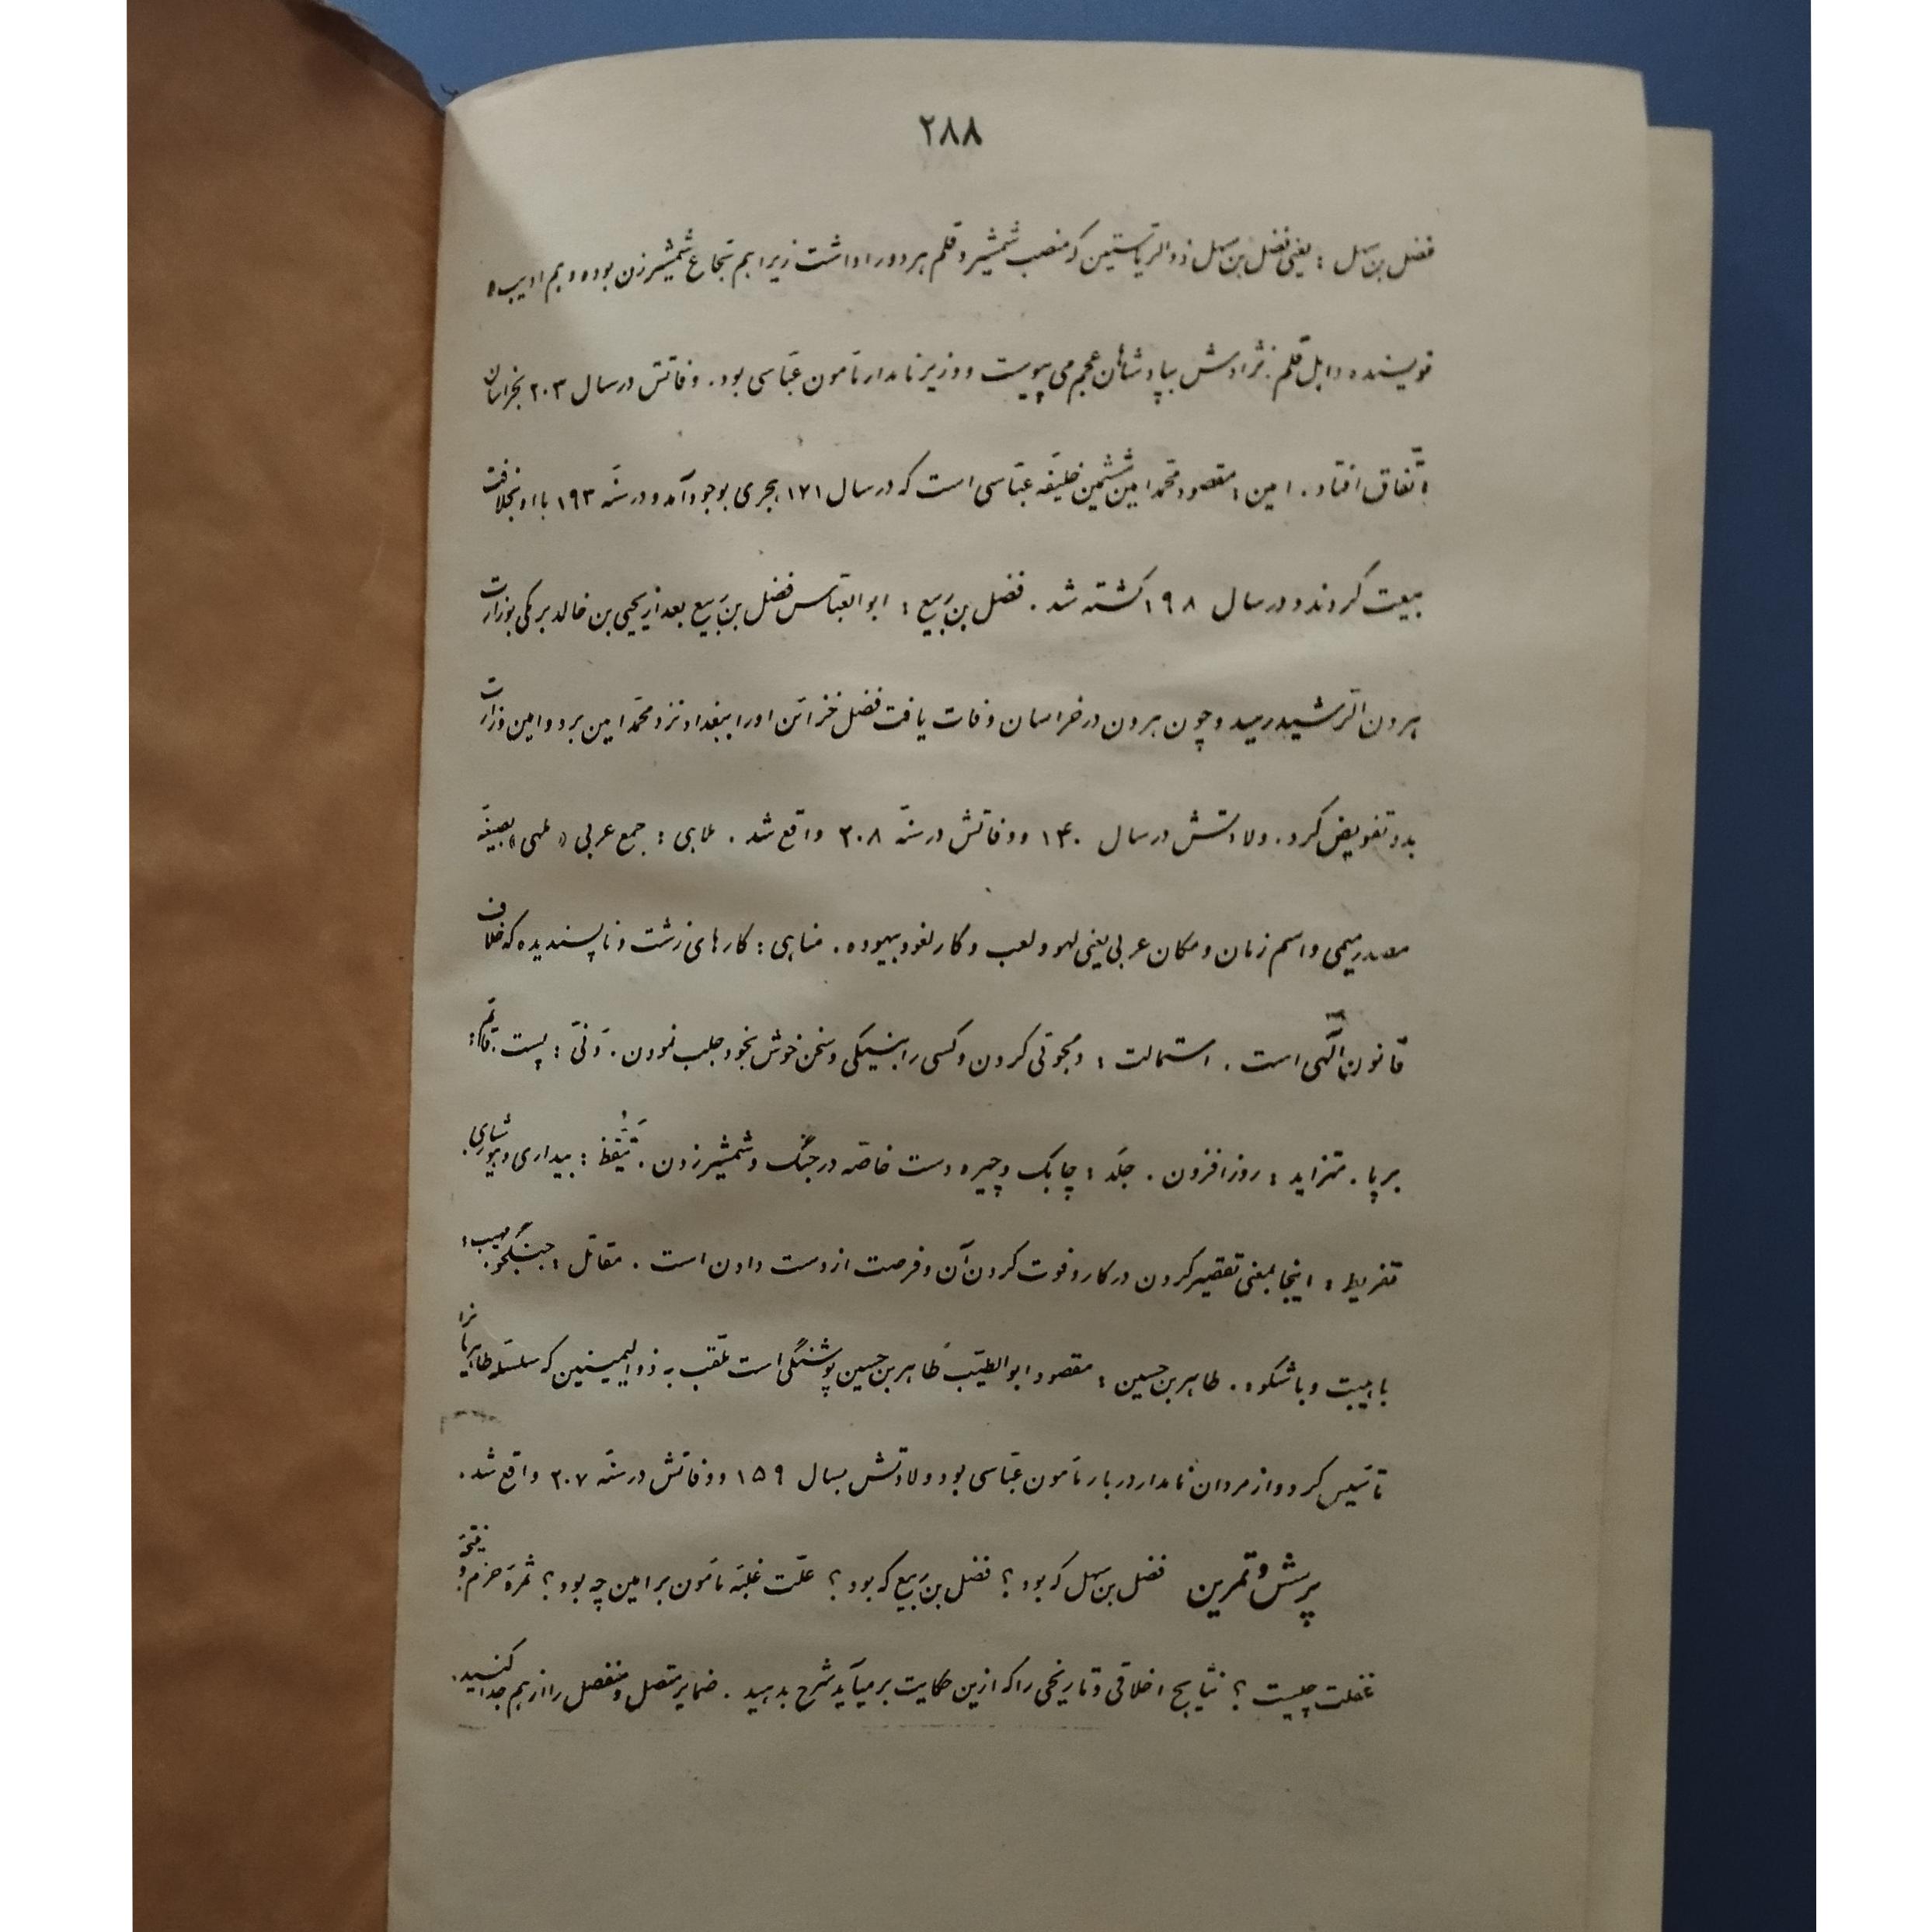 ۲۸۸
فضل بن سهل : یعنی فضل بن سهل ذوالریاستین که منصب شمشیر و قلم هر دو را داشت زیرا هم شجاع شمشیرزن بوده و هم ادیب و
نویسنده و اهل قلم. نژادش بپادشاهان عجم می‌پیوست و وزیر نامدار مأمون عبّاسی بود. وفاتش در سال ۲۰۳ بخراسان
اتّفاق افتاد . امین : مقصود محمّد امین ششمین خلیفهٔ عبّاسی است که در سال ۱۷۱ هجری بوجود آمد و در سنهٔ ۱۹۳ با او بخلافت
بیعت کردند و در سال ۱۹۸ کشته شد . فضل بن ربیع : ابوالعبّاس فضل بن ربیع بعد از یحیی بن خالد برمکی بوزارت
هرون الرّشید رسید و چون هرون در خراسان وفات یافت فضل خزائن او را ببغداد نزد محمّد امین برد و امین وزارت
بدو تفویض کرد . ولادتش در سال ۱۴۰ و وفاتش در سنهٔ ۲۰۸ واقع شد . ملاهی : جمع عربی « ملهی » بصیغهٔ
مصدر میمی و اسم زمان و مکان عربی یعنی لهو و لعب و کار لغو و بیهوده . مناهی : کارهای زشت و ناپسندیده که خلاف
قانون الٓهی است . استمالت : دلجوئی کردن و کسی را بنیکی و سخن خوش بخود جلب نمودن . دَنیّ : پست . قائم :
برپا . متزاید : روزافزون . جَلد : چابک و چیره دست خاصّه در جنگ و شمشیر زدن . تَیَقُّظ : بیداری و هوشیاری .
تفریط : اینجا بمعنی تقصیر کردن در کار و فوت کردن آن و فرصت از دست دادن است . مقاتل : جنگجو . مهیب :
با هیبت و با شکوه . طاهر بن حسین : مقصود ابوالطیّب طاهر بن حسین پوشنگی است ملقّب به ذوالیمینین که سلسلهٔ طاهریانرا
تأسیس کرد و از مردان نامدار دربار مأمون عبّاسی بود ولادتش بسال ۱۵۹ و وفاتش در سنهٔ ۲۰۷ واقع شد .
پرسش و تمرین فضل بن سهل که بود ؟ فضل بن ربیع که بود ؟ علّت غلبهٔ مأمون بر امین چه بود ؟ ثمرهٔ حزم و نتیجهٔ
غفلت چیست ؟ نتایج اخلاقی و تاریخی را که ازین حکایت برمیآید شرح بدهید . ضمایر متصل و منفصل را از هم جدا کنید .